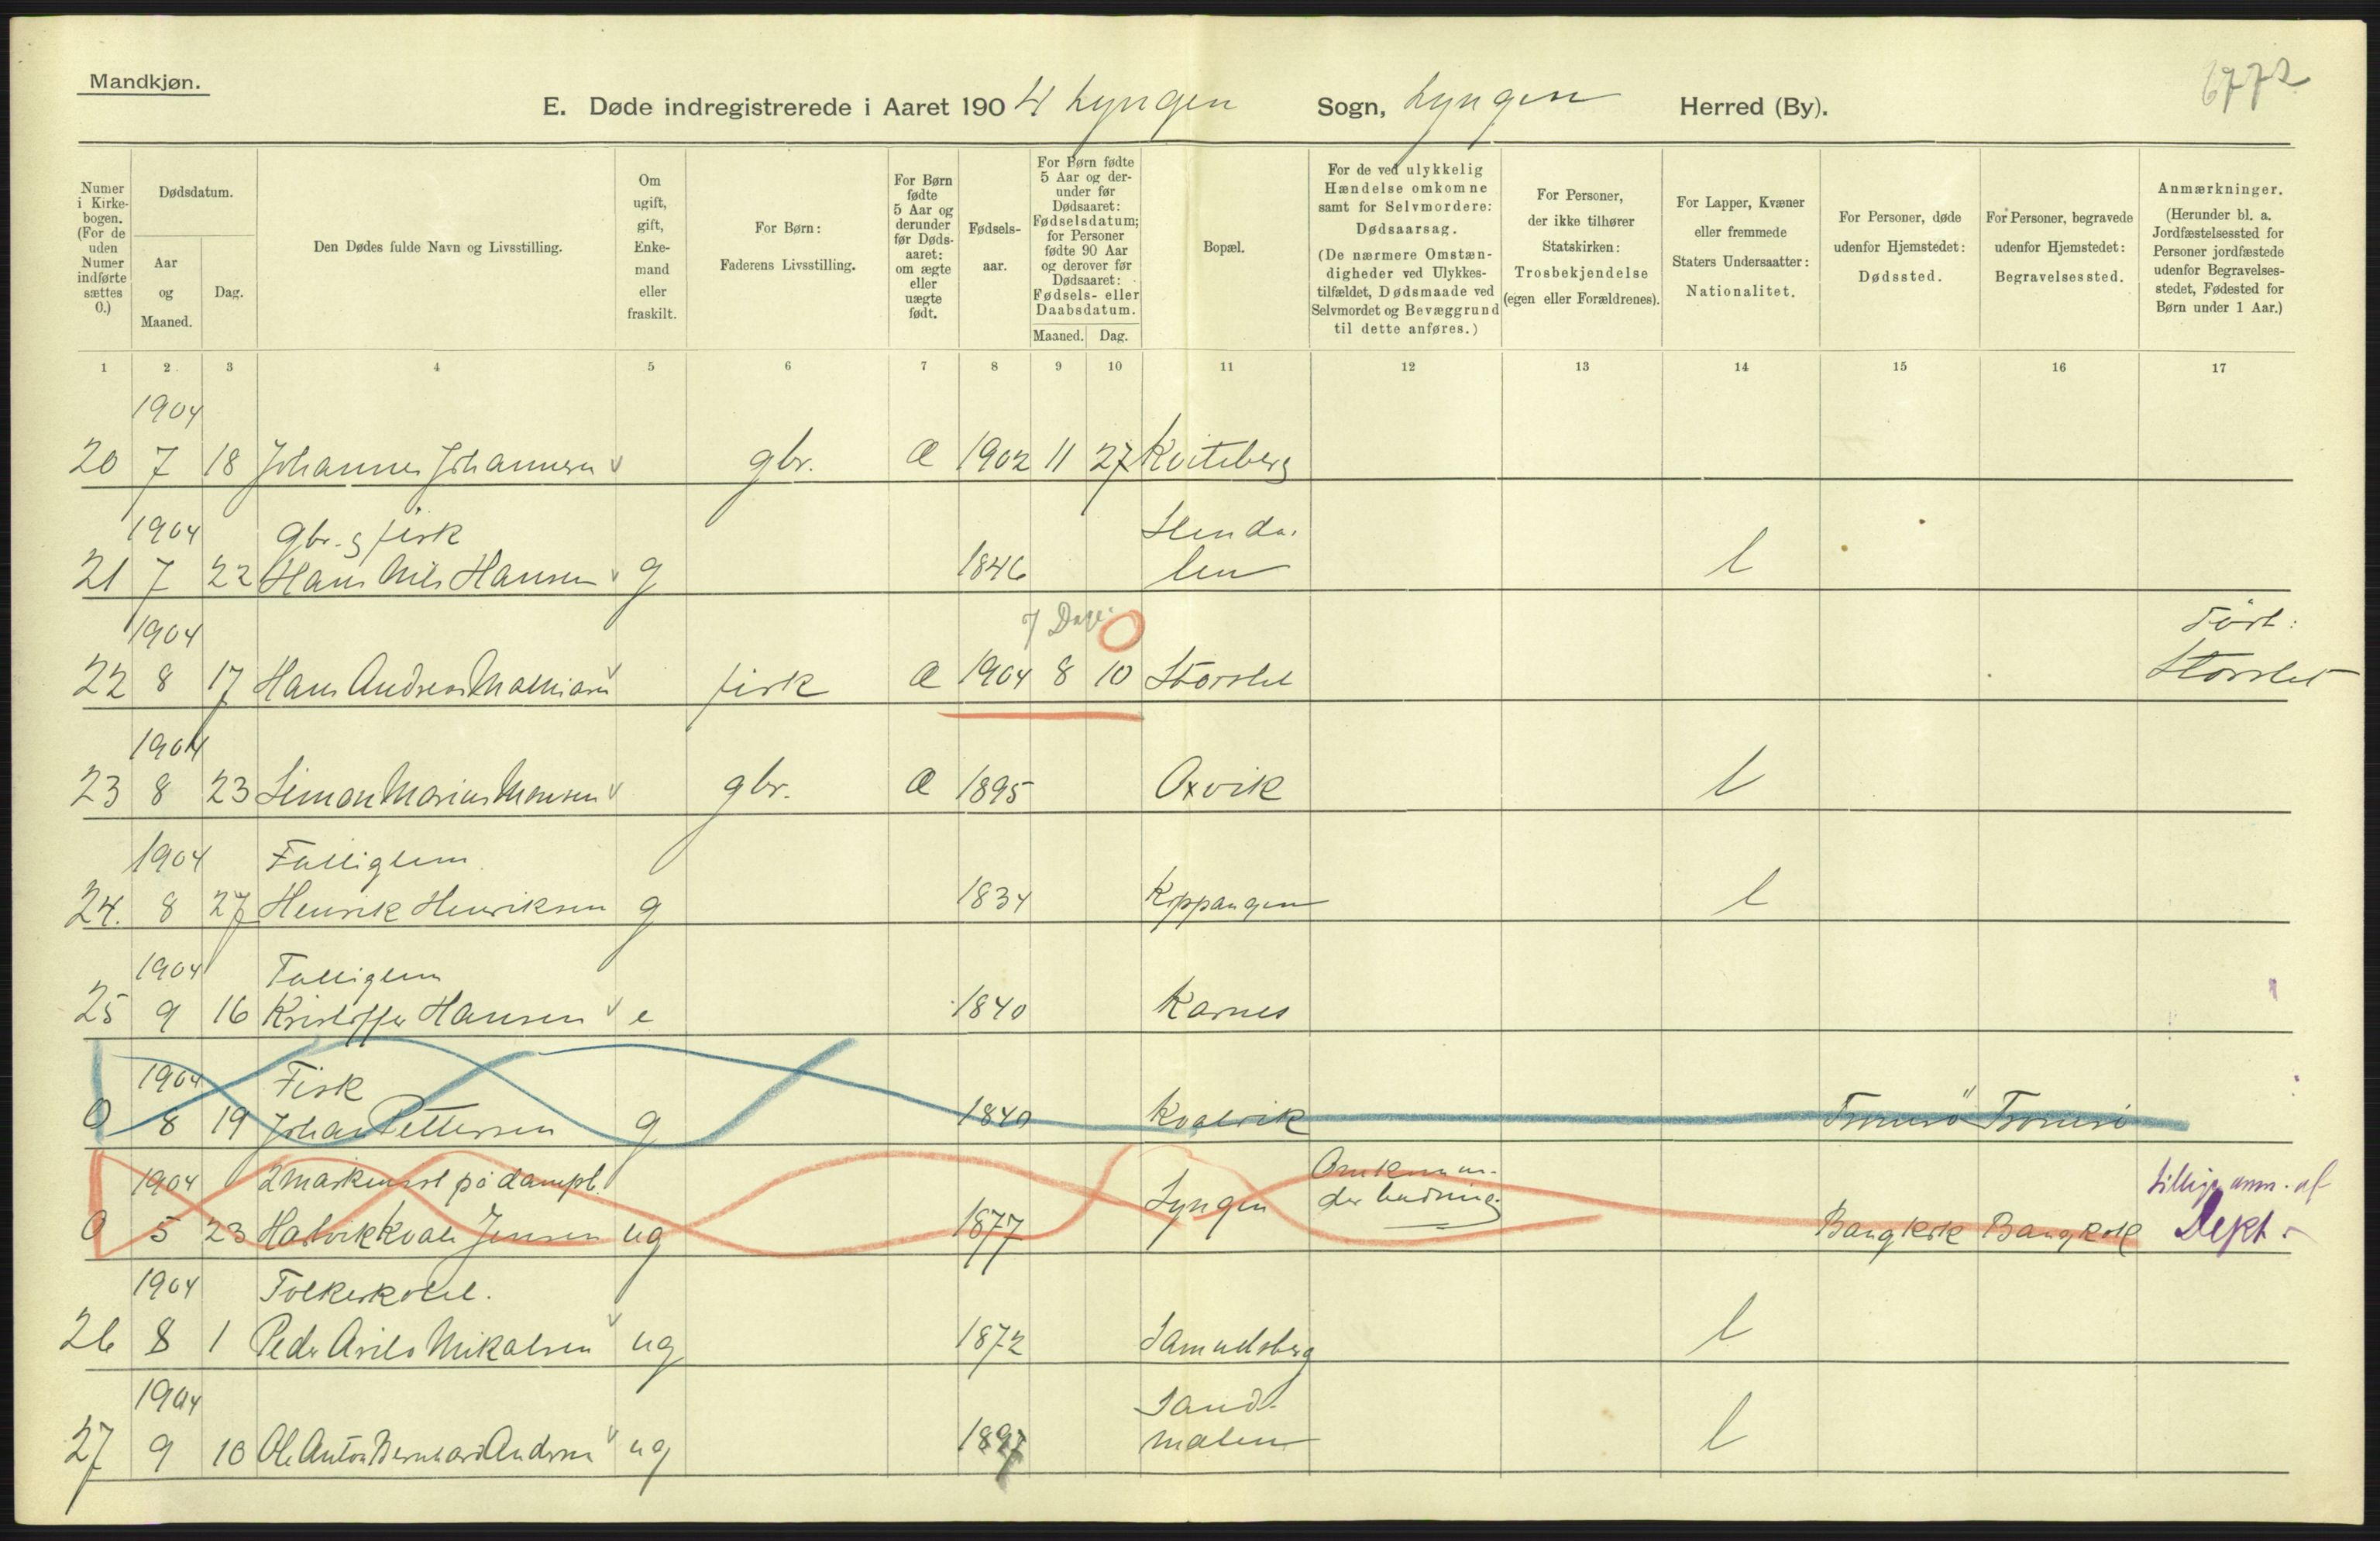 Mandkjøn.
6772
E. Døde indregistrerede i Aaret 1904 Lyngen Sogn, Lyngen Herred (By).
Numer i Kirkebogen. (For de uden Numer indførte sættes 0.)
Dødsdatum.
Aar og Maaned.
Dag.
Den Dødes fulde Navn og Livsstilling.
Om ugift, gift, Enkemand eller fraskilt.
For Børn: Faderens Livsstilling.
For Børn fødte 5 Aar og derunder før Dødsaaret: om ægte eller uægte født.
Fødselsaar.
For Børn fødte 5 Aar og derunder før Dødsaaret: Fødselsdatum; for Personer fødte 90 Aar og derover før Dødsaaret: Fødsels- eller Daabsdatum.
Maaned. Dag.
Bopæl.
For de ved ulykkelig Hændelse omkomne samt for Selvmordere: Dødsaarsag. (De nærmere Omstændigheder ved Ulykkestilfældet, Dødsmaade ved Selvmordet og Bevæggrund til dette anføres.)
For Personer, der ikke tilhører Statskirken: Trosbekjendelse (egen eller Forældrenes).
For Lapper, Kvæner eller fremmede Staters Undersaatter: Nationalitet.
For Personer, døde udenfor Hjemstedet: Dødssted.
For Personer, begravede udenfor Hjemstedet: Begravelsessted.
Anmærkninger. (Herunder bl. a. Jordfæstelsessted for Personer jordfæstede udenfor Begravelsesstedet, Fødested for Børn under 1 Aar.)
1 2 3 4 5 6 7 8 9 10 11 12 13 14 15 16 17
1904
20 7 18 Johannes Johannesen gbr. Æ 1902 11 27 Kviteberg
1904 gbr. og fisk
21 7 22 Hans Nils Hansen g 1846 l
1904 7 Dage Født:
22 8 17 Hans Andreas fisk Æ 1904 8 10 Storslet Storslet
1904
23 8 23 Simon Marius Monsen gbr. Æ 1895 Oxvik l
1904 Fattiglem
24. 8 27 Henrik Henriksen g 1834 Koppangen l
1904 Fattiglem
25 9 16 Kristoffer Hansen e 1840 Karnes
1904 Fisk
0 8 19 Johan Pettersen g 1840 Kvalvik Tromsö Tromsö
1904 på dampb.
0 5 23 Jensen ug 1877 Lyngen Bangkok Bangkok
tillige anm. af
Dept.
1904
26 8 1 Peder Mikalsen ug 1872 Samuelsberg l
1904 Sand-
27 9 10 Ole Anton Bernhard Andersen ug 1897 malen l